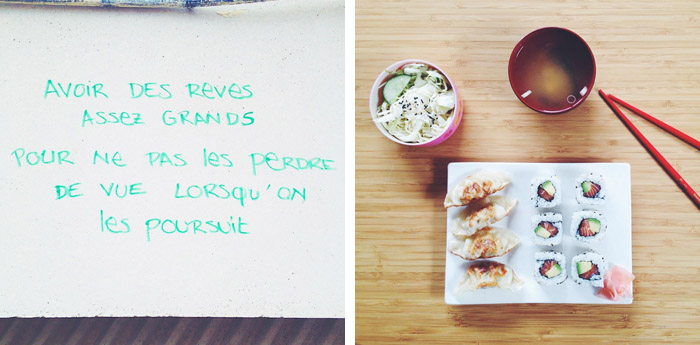 AVOIR DES REVES
ASSEZ GRANDS
POUR NE PAS les PERDRE
DE VUE LORSQU'ON
les POURSUIT